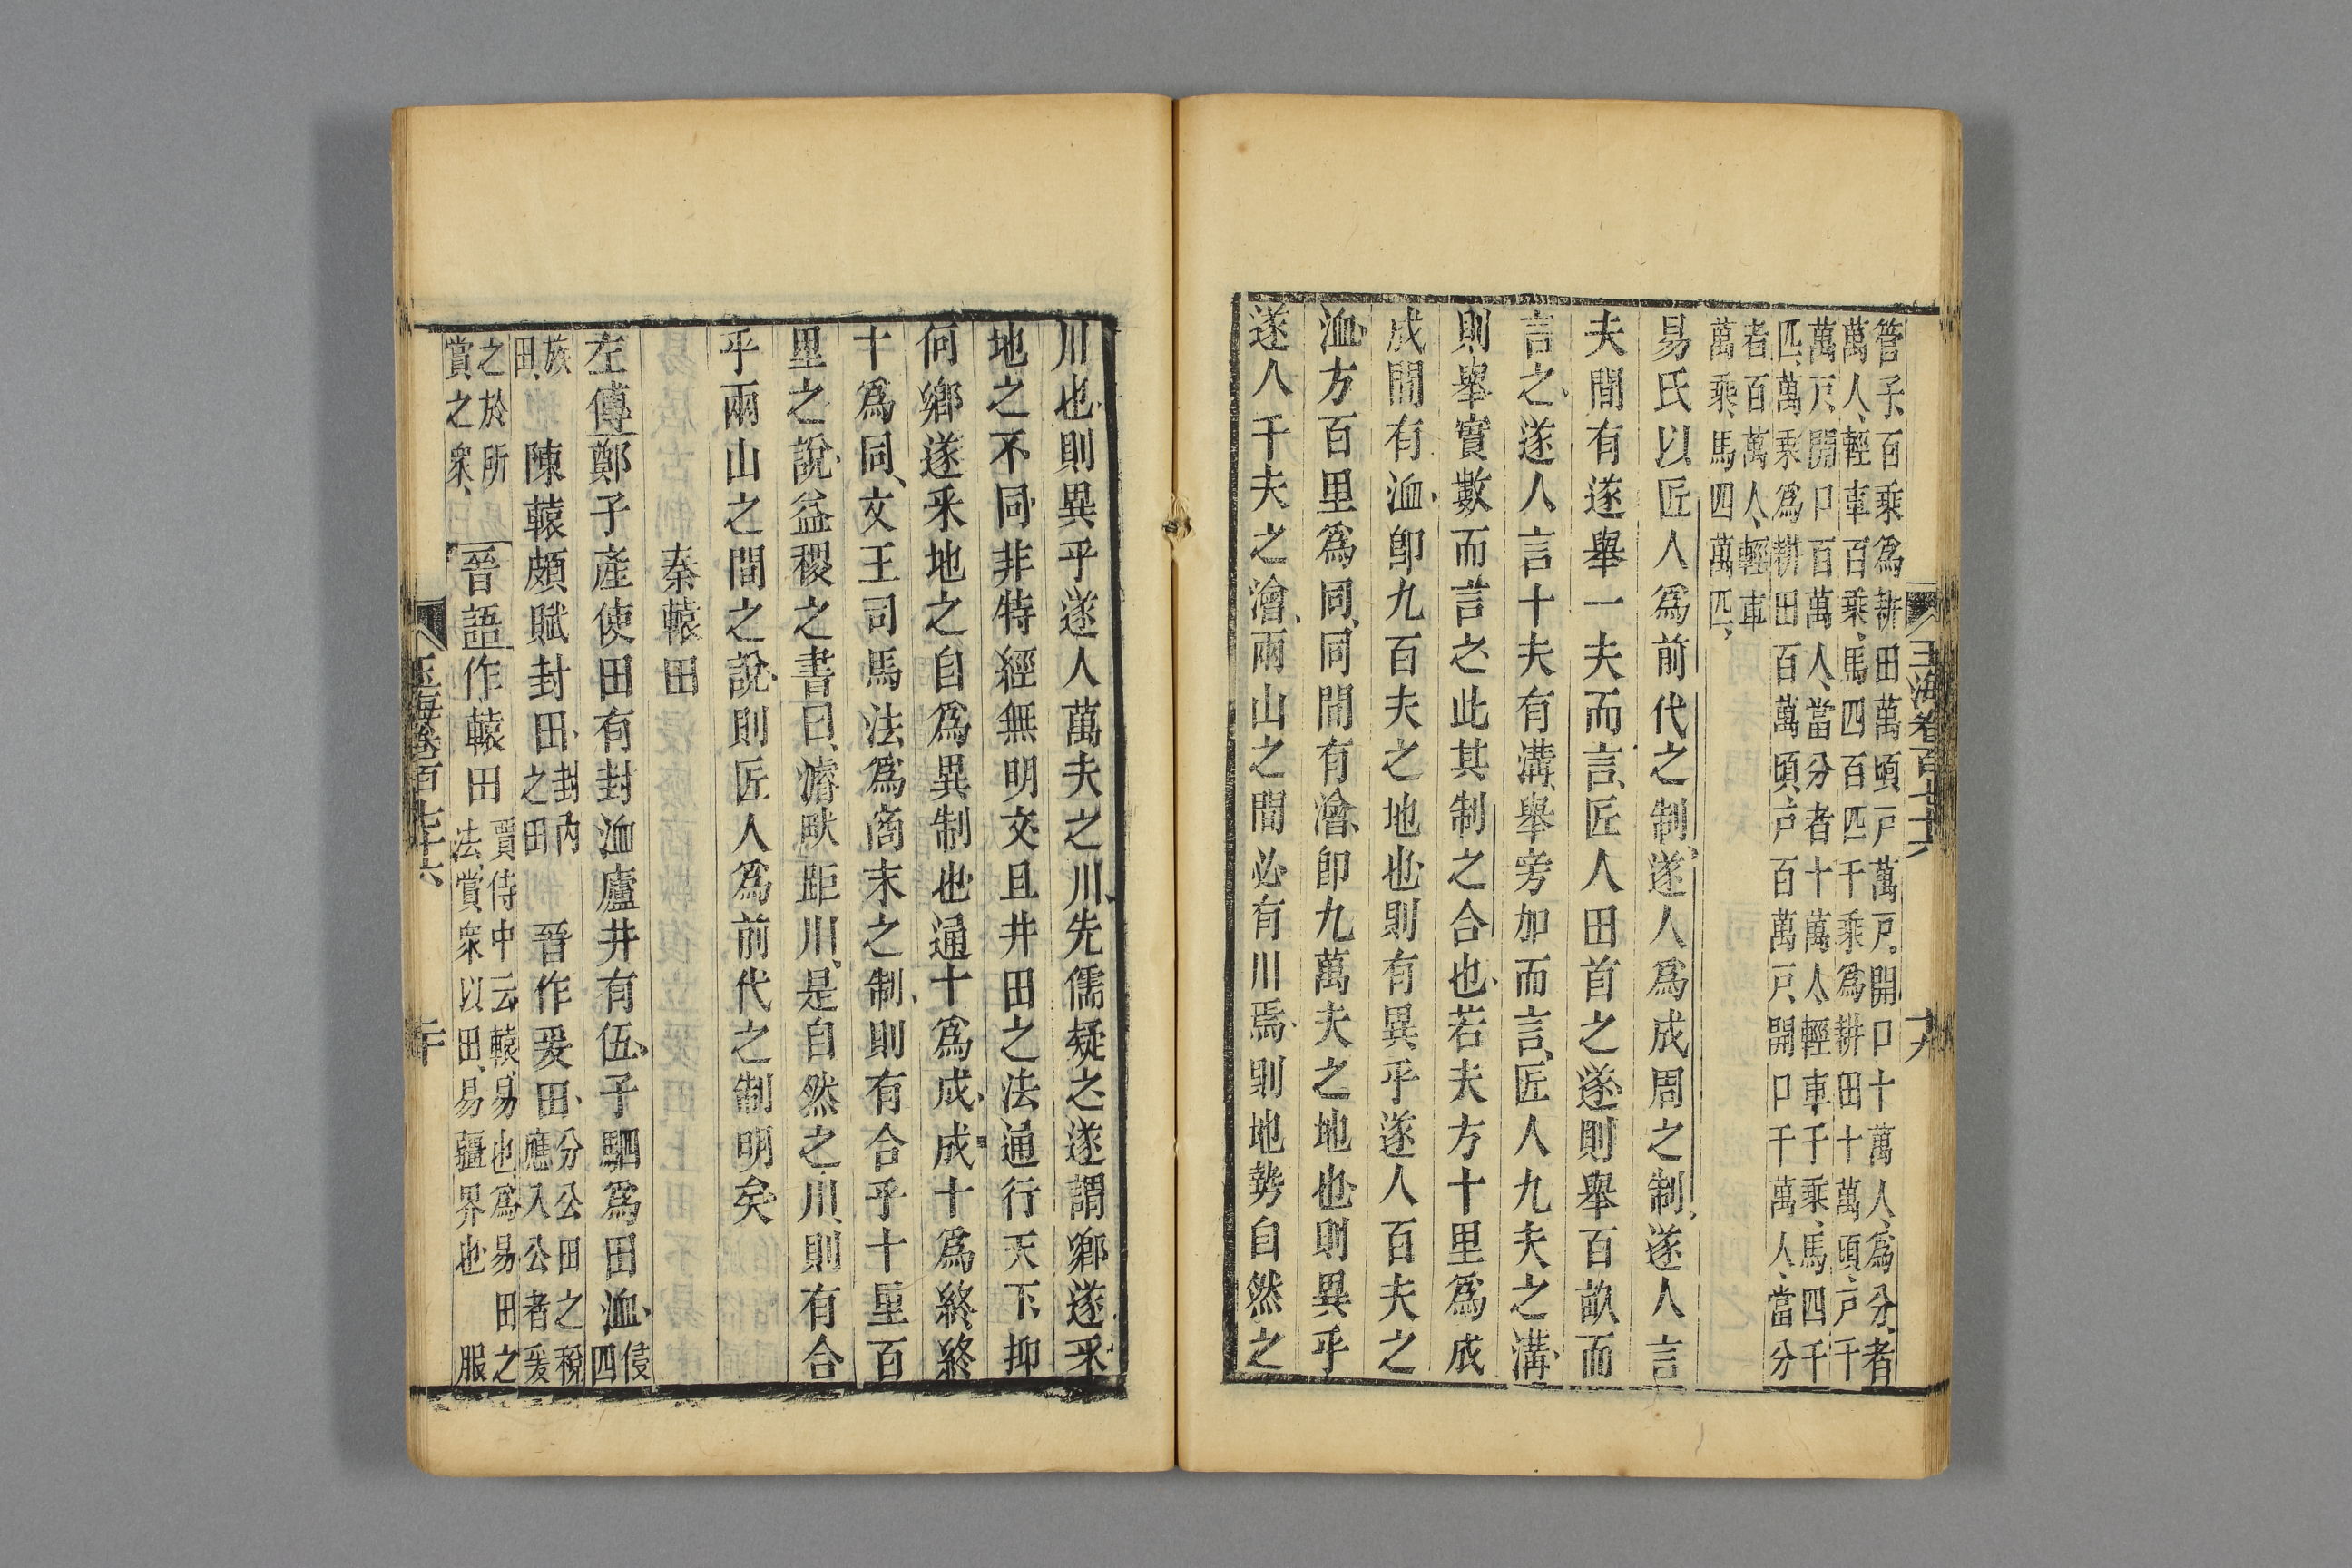 管子百乘爲耕田萬頃戸萬戸開口十萬人爲分者
萬人輕車百乘馬四百匹千乘爲耕田十萬頃戸千
萬戸開口百萬人當分者十萬人輕車千乘馬四千
匹萬乘爲耕田百萬頃戸百萬戸開口千萬人當分
者百萬人輕車
萬乘馬四萬匹
易氏以匠人爲前代之制遂人爲成周之制遂人言
夫間有遂舉一夫而言匠人田首之遂則舉百畝而
言之遂人言十夫有溝舉旁加而言匠人九夫之溝
則舉實數而言之此其制之合也若夫方十里爲成
成間有洫卽九百夫之地也則有異乎遂人百夫之
洫方百里爲同同間有澮卽九萬夫之地也則異乎
遂人千夫之澮兩山之間必有川焉則地勢自然之
川也則異乎遂人萬夫之川先儒疑之遂謂鄉遂采
地之不同非特經無明文且井田之法通行天下抑
何鄉遂采地之自爲異制也通十爲成成十爲終終
十爲同文王司馬法爲商末之制則有合乎十里百
里之說益稷之書曰濬畎距川是自然之川則有合
乎兩山之間之說則匠人爲前代之制明矣
秦轅田
左傳鄭子產使田有封洫廬井有伍子駟爲田洫侵四
族田 陳轅頗賦封田封内之田 晉作爰田分公田之稅應入公者爰
之於所賞之衆 晉語作轅田賈侍中云轅易也爲易田之法賞衆以田易疆界也 服
玉海卷百七十六
十九
玉海卷百七十六
二十